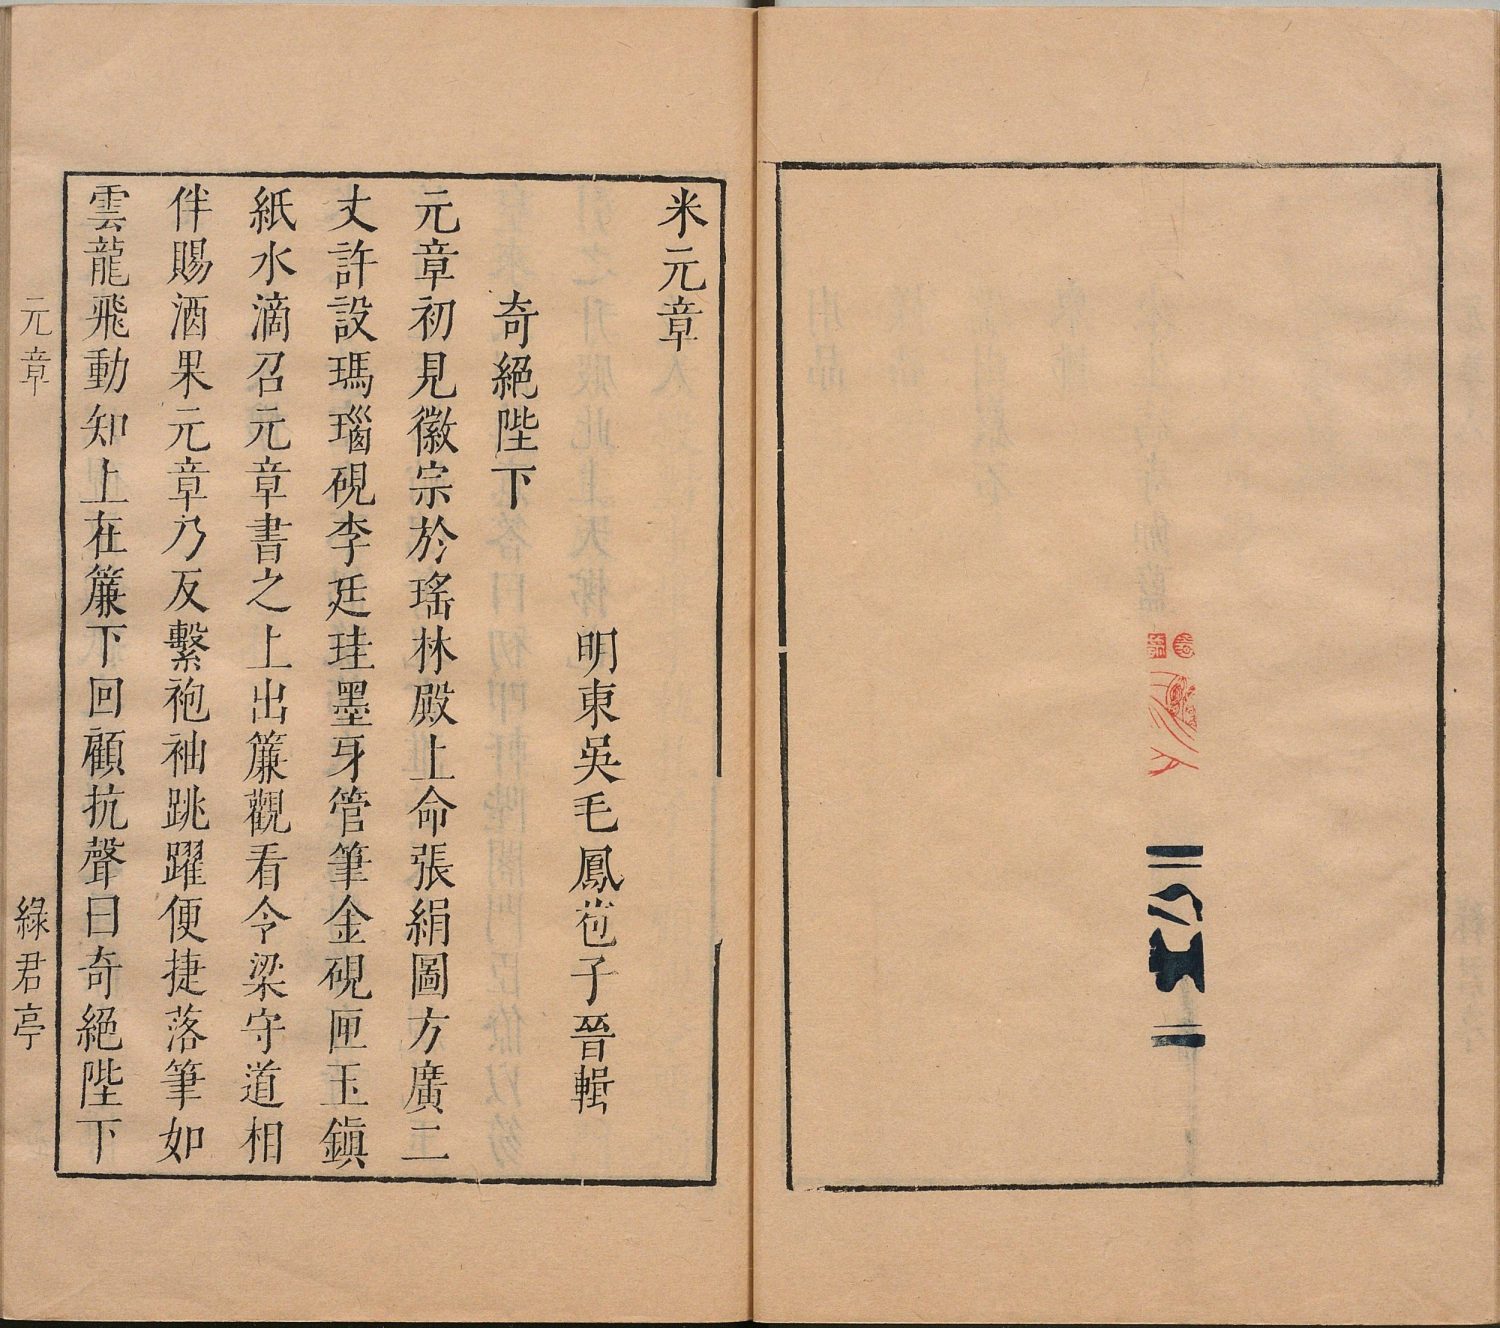 米元章
明東吳毛鳳苞子晉輯
奇絕陛下
元章初見徽宗於瑤林殿上命張絹圖方廣二
丈許設瑪瑙硯李廷珪墨牙管筆金硯匣玉鎮
紙水滴召元章書之上出簾觀看令梁守道相
伴賜酒果元章乃反繫袍袖跳躍便捷落筆如
雲龍飛動知上在簾下回顧抗聲曰奇絕陛下
元章
綠君亭